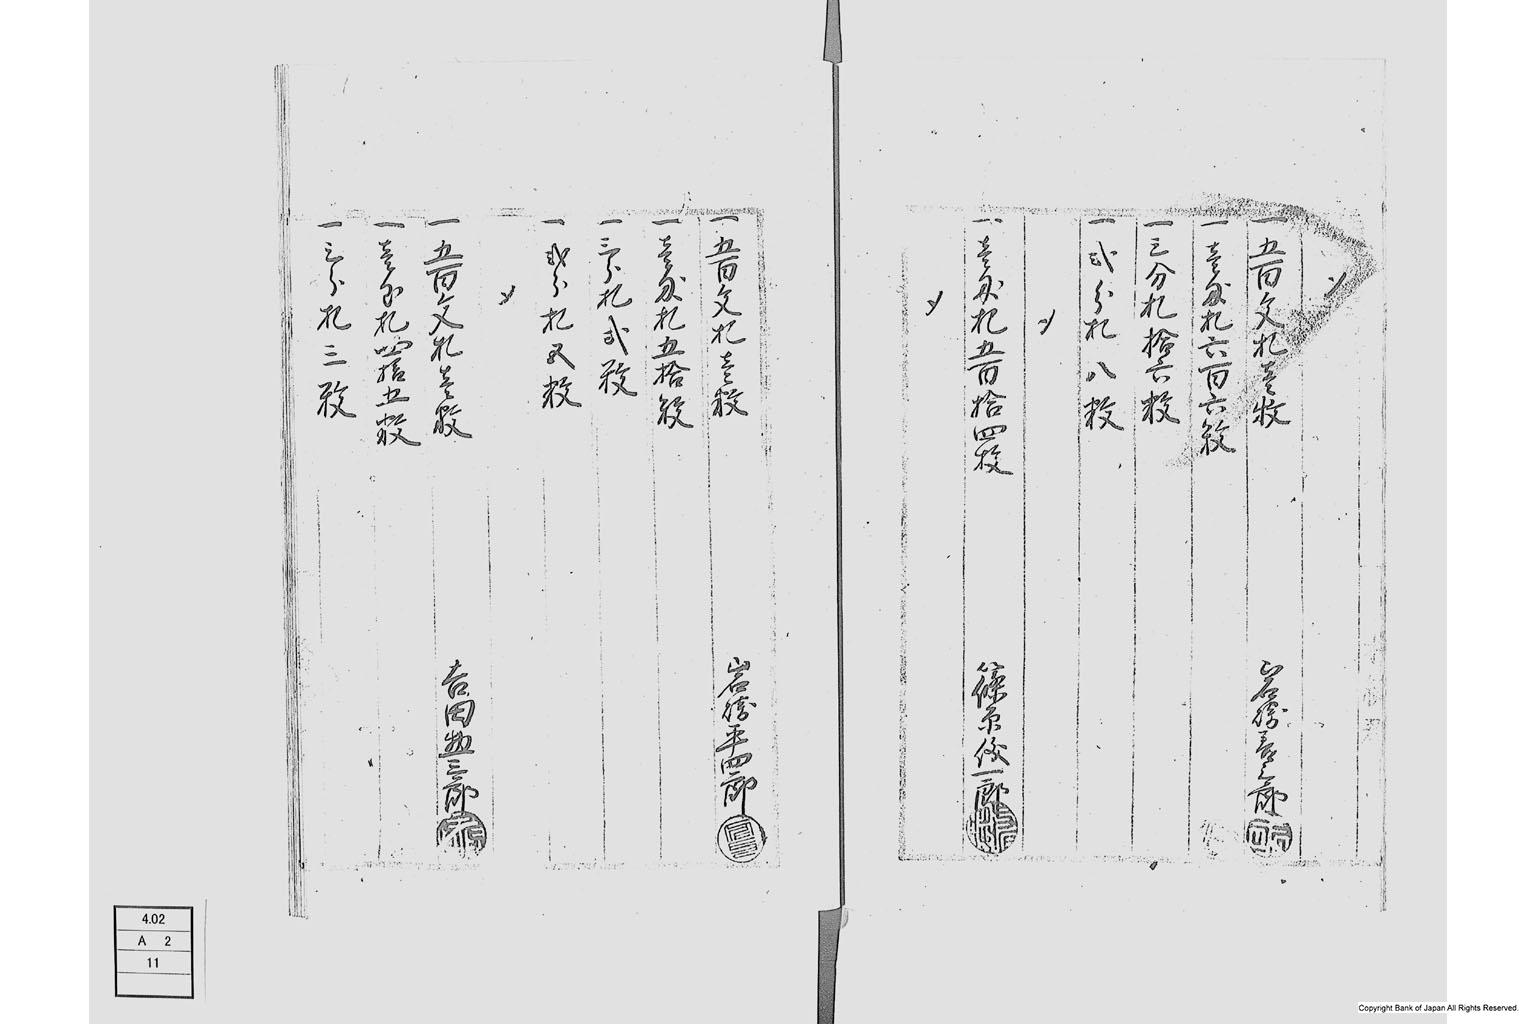 〆
一五百文札壱枚
岩勝善三郎
一壱匁札六百六枚
一三分札拾六枚
一弐分札八枚
〆
一壱匁札五百拾四枚
篠原俊一郎
〆
一五百文札壱枚
岩勝平四郎
一壱匁札五拾枚
一三分札弐枚
一弐分札五枚
〆
一五百文札壱枚
吉田惣三郎
一壱匁札四拾五枚
一三分札三枚
4.02
A 2
11
Copyright Bank of Japan All Rights Reserved.